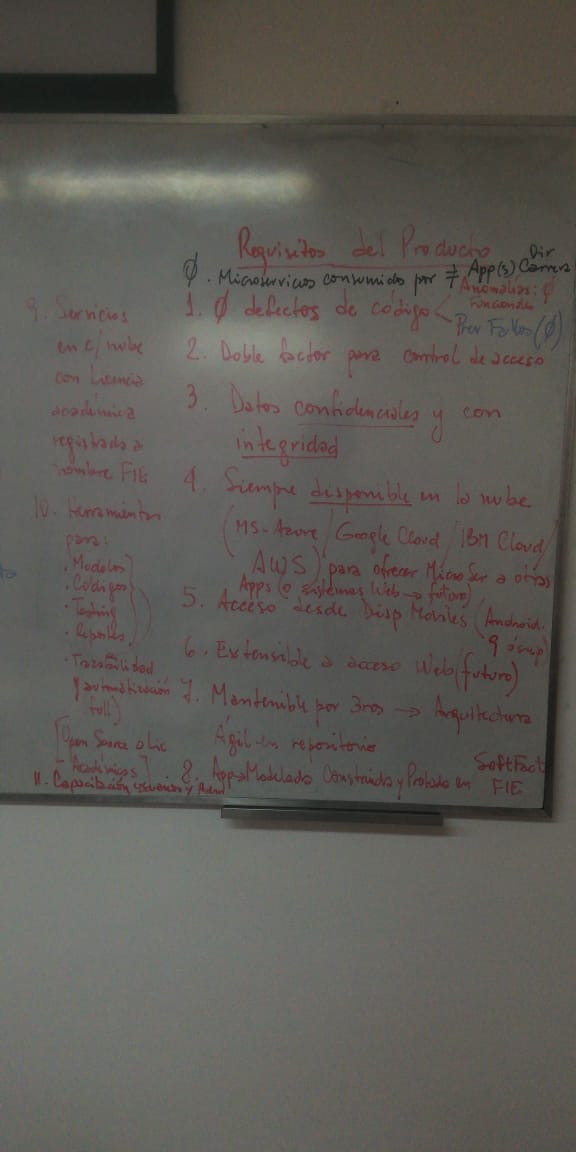 Requisitos del Producto
Ø. Microservicios consumido por ≠ App(s) Dir Carrera
1. Ø defectos de código < Anomalías: Ø Funcionales
Prev Fallos (Ø)
2. Doble factor para control de acceso
3. Datos confidenciales y con
integridad
4. Siempre disponible en la nube
(MS-Azure / Google Cloud / IBM Cloud /
AWS) para ofrecer MicroSer a otras
Apps (o sistemas Web → futuro)
5. Acceso desde Disp Moviles (Android.
9 ó sup)
6. Extensible a acceso Web (futuro)
7. Mantenible por 3ros → Arquitectura
Ágil en repositorio
8. App → Modelado Construida y Probado en SoftFact
FIE
9. Servicios
en c/ nube
con licencia
académica
registrada a
nombre FIE
10. Herramientas
para:
• Modelos
• Códigos
• Testing
• Reportes
• Trazabilidad
(automatización
full)
[Open Source o Lic
Académicas]
11. Capacitación usuarios y